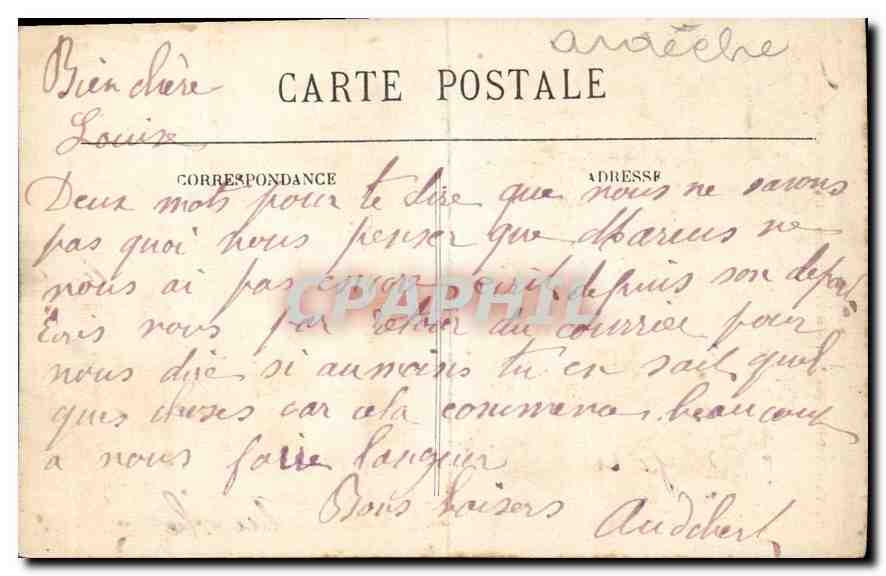 ardèche
Bien chère
CARTE POSTALE
Louise
CORRESPONDANCE
ADRESSE
Deux mots pour te dire que nous ne savons
pas quoi nous penser que Marius ne
nous ai pas encore ecrit depuis son depart
Ecris nous par retour du courrie pour
nous dire si au moins tu en sait quel-
ques choses car cela commence beaucoup
a nous faire languir
Bons baisers
Audibert
CPAPHIL